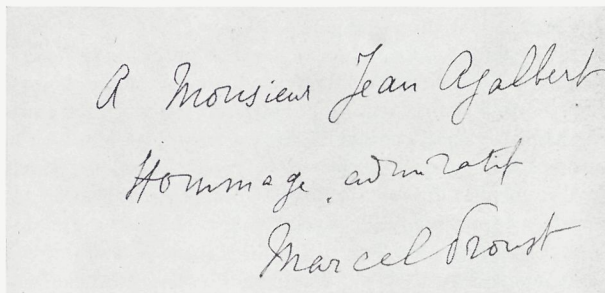 A Monsieur Jean Ajalbert
Hommage admiratif
Marcel Proust